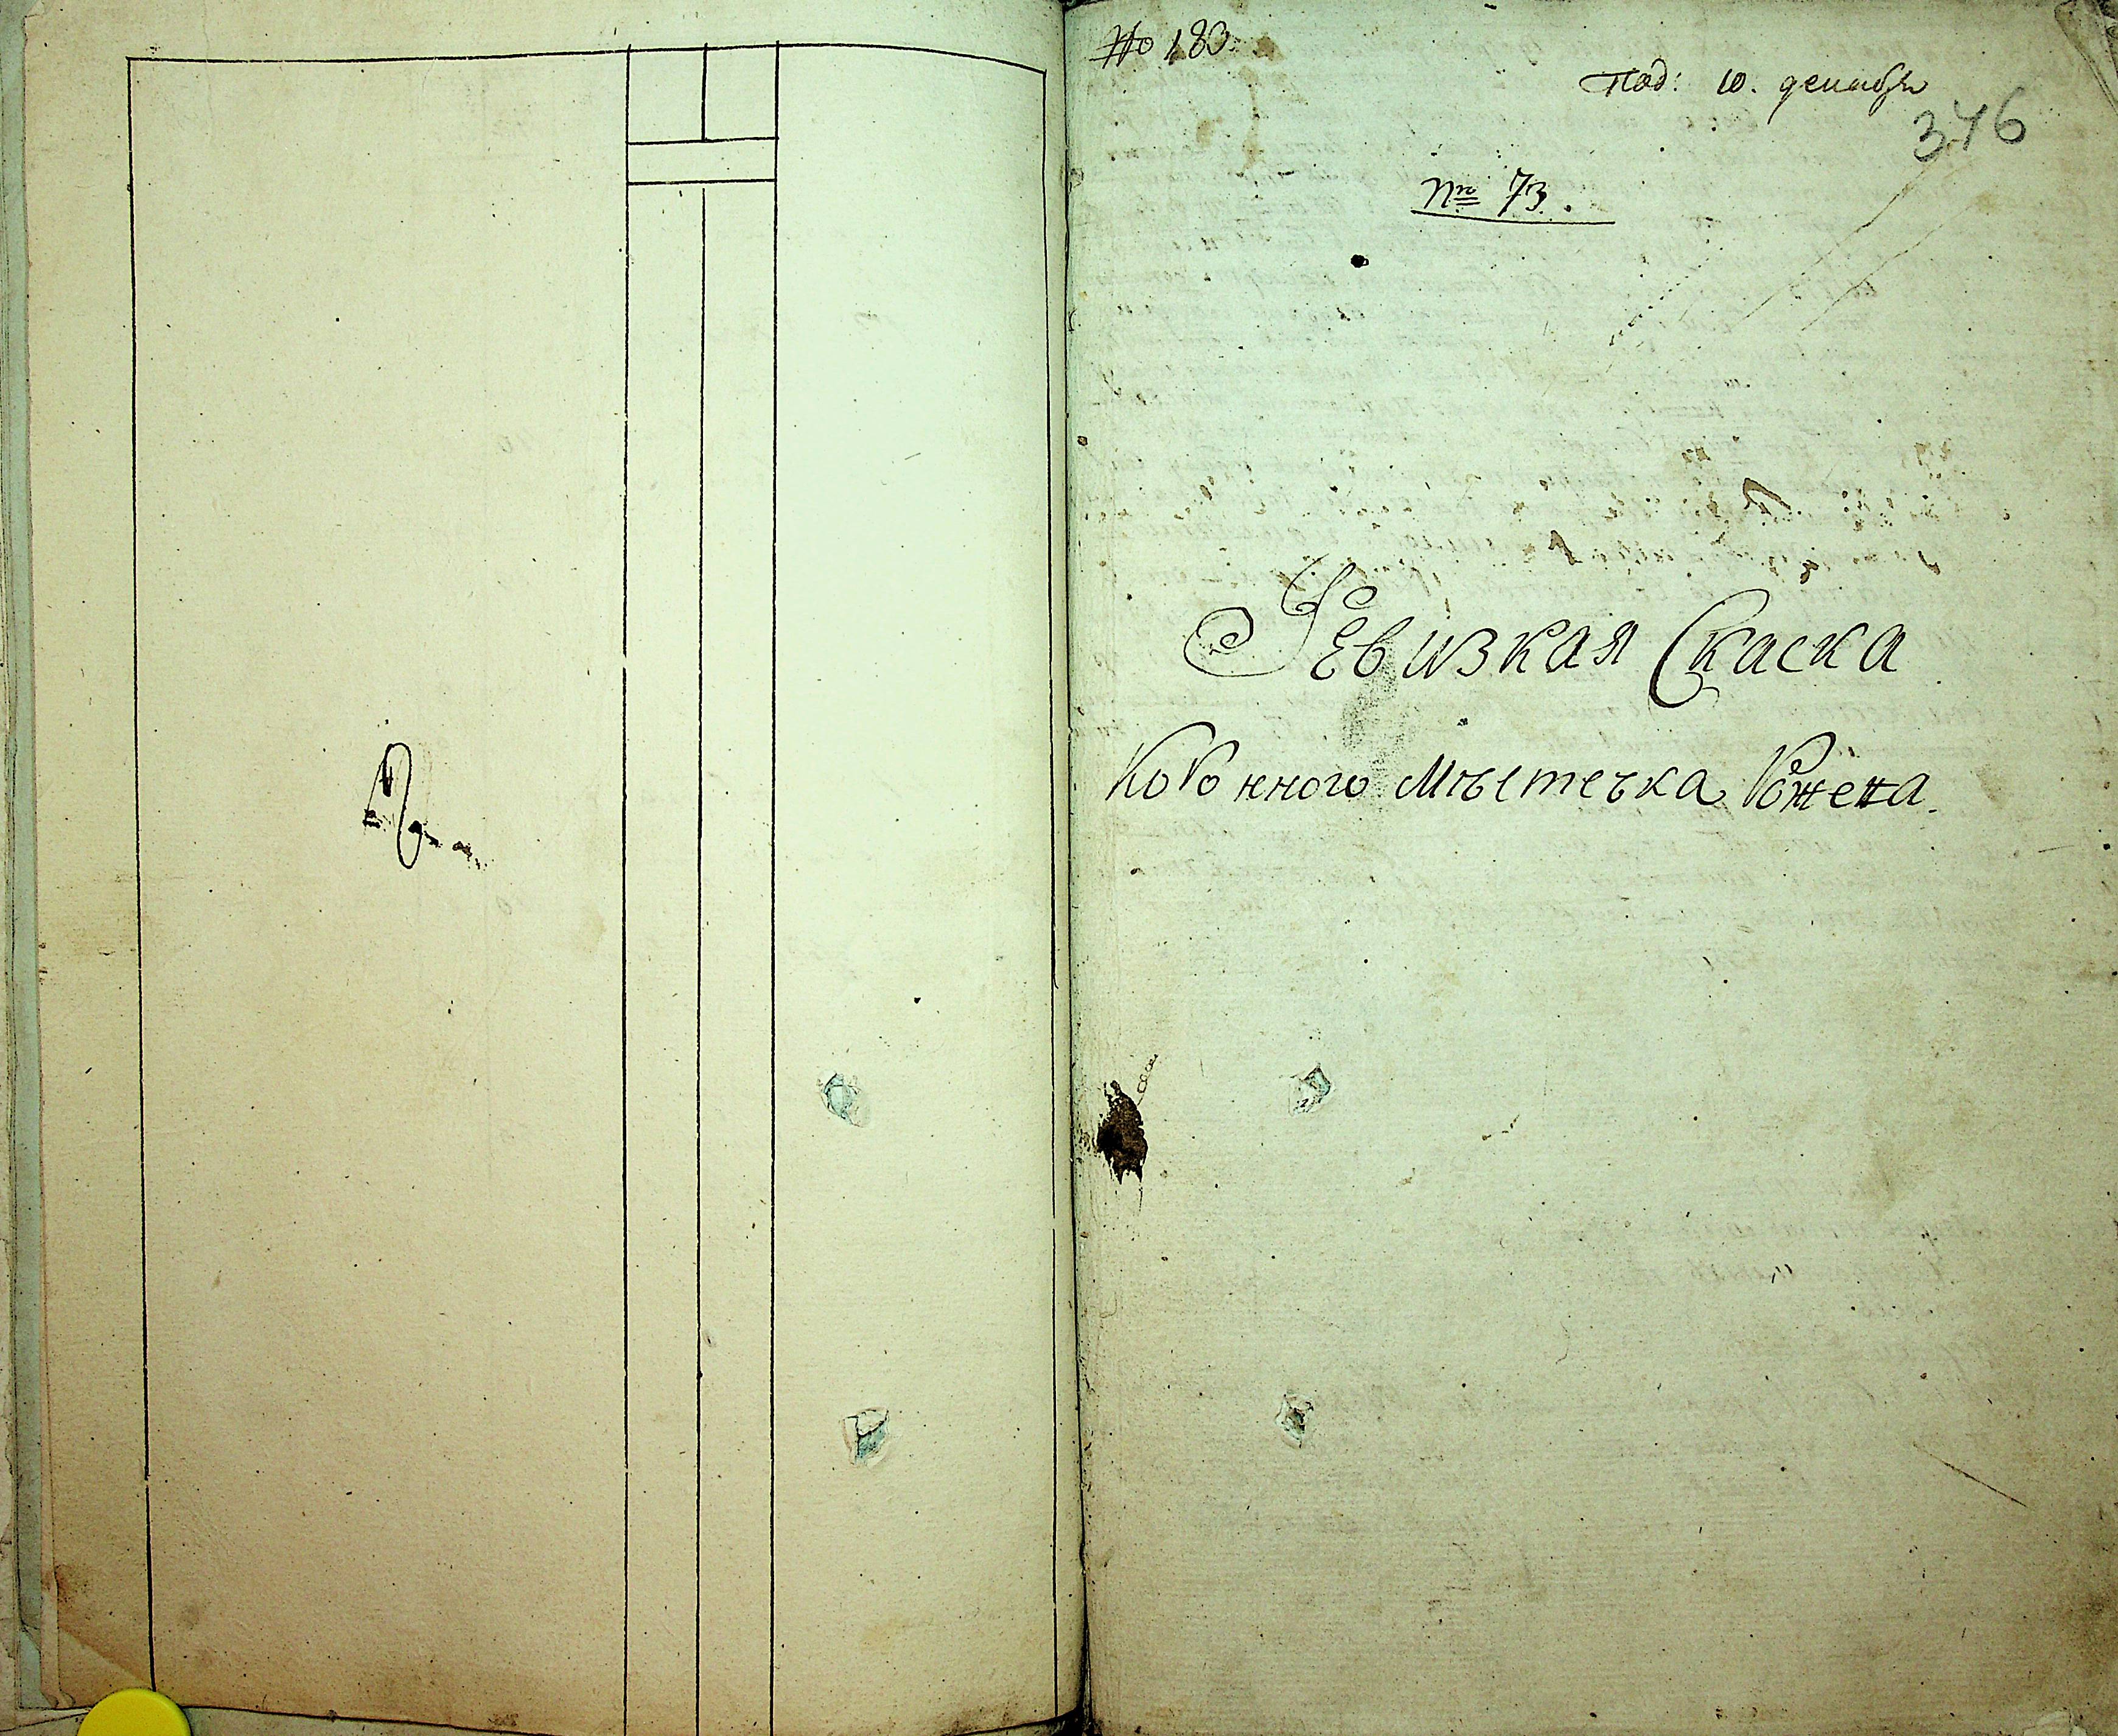 No 183.
Под: 10. декабря
376
Nro 73.
Ревизкая Скаска
Коронного Мѣстечка Рожена.